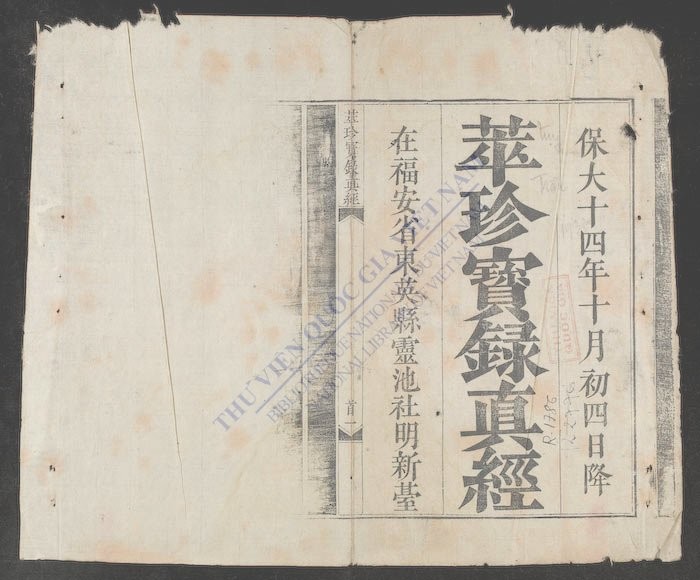 保大十四年十月初四日降
萃珍寶錄真經
在福安省東英縣靈池社明新臺
萃珍寶錄真經
首一
THƯ VIỆN QUỐC GIA VIỆT NAM
BIBLIOTHEQUE NATIONALE DU VIETNAM
NATIONAL LIBRARY OF VIETNAM
R1786